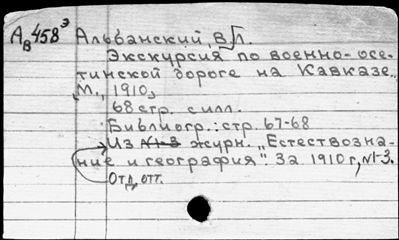 Ав458э Альбанский, В.П.
Экскурсия по военно-осе-
тинской дороге на Кавказе.
М., 1910,
68 стр. с илл.
Библиогр.: стр. 67-68
Из №1-3 журн. „Естествозна-
ние и география". За 1910 г., №1-3.
Отд. отт.